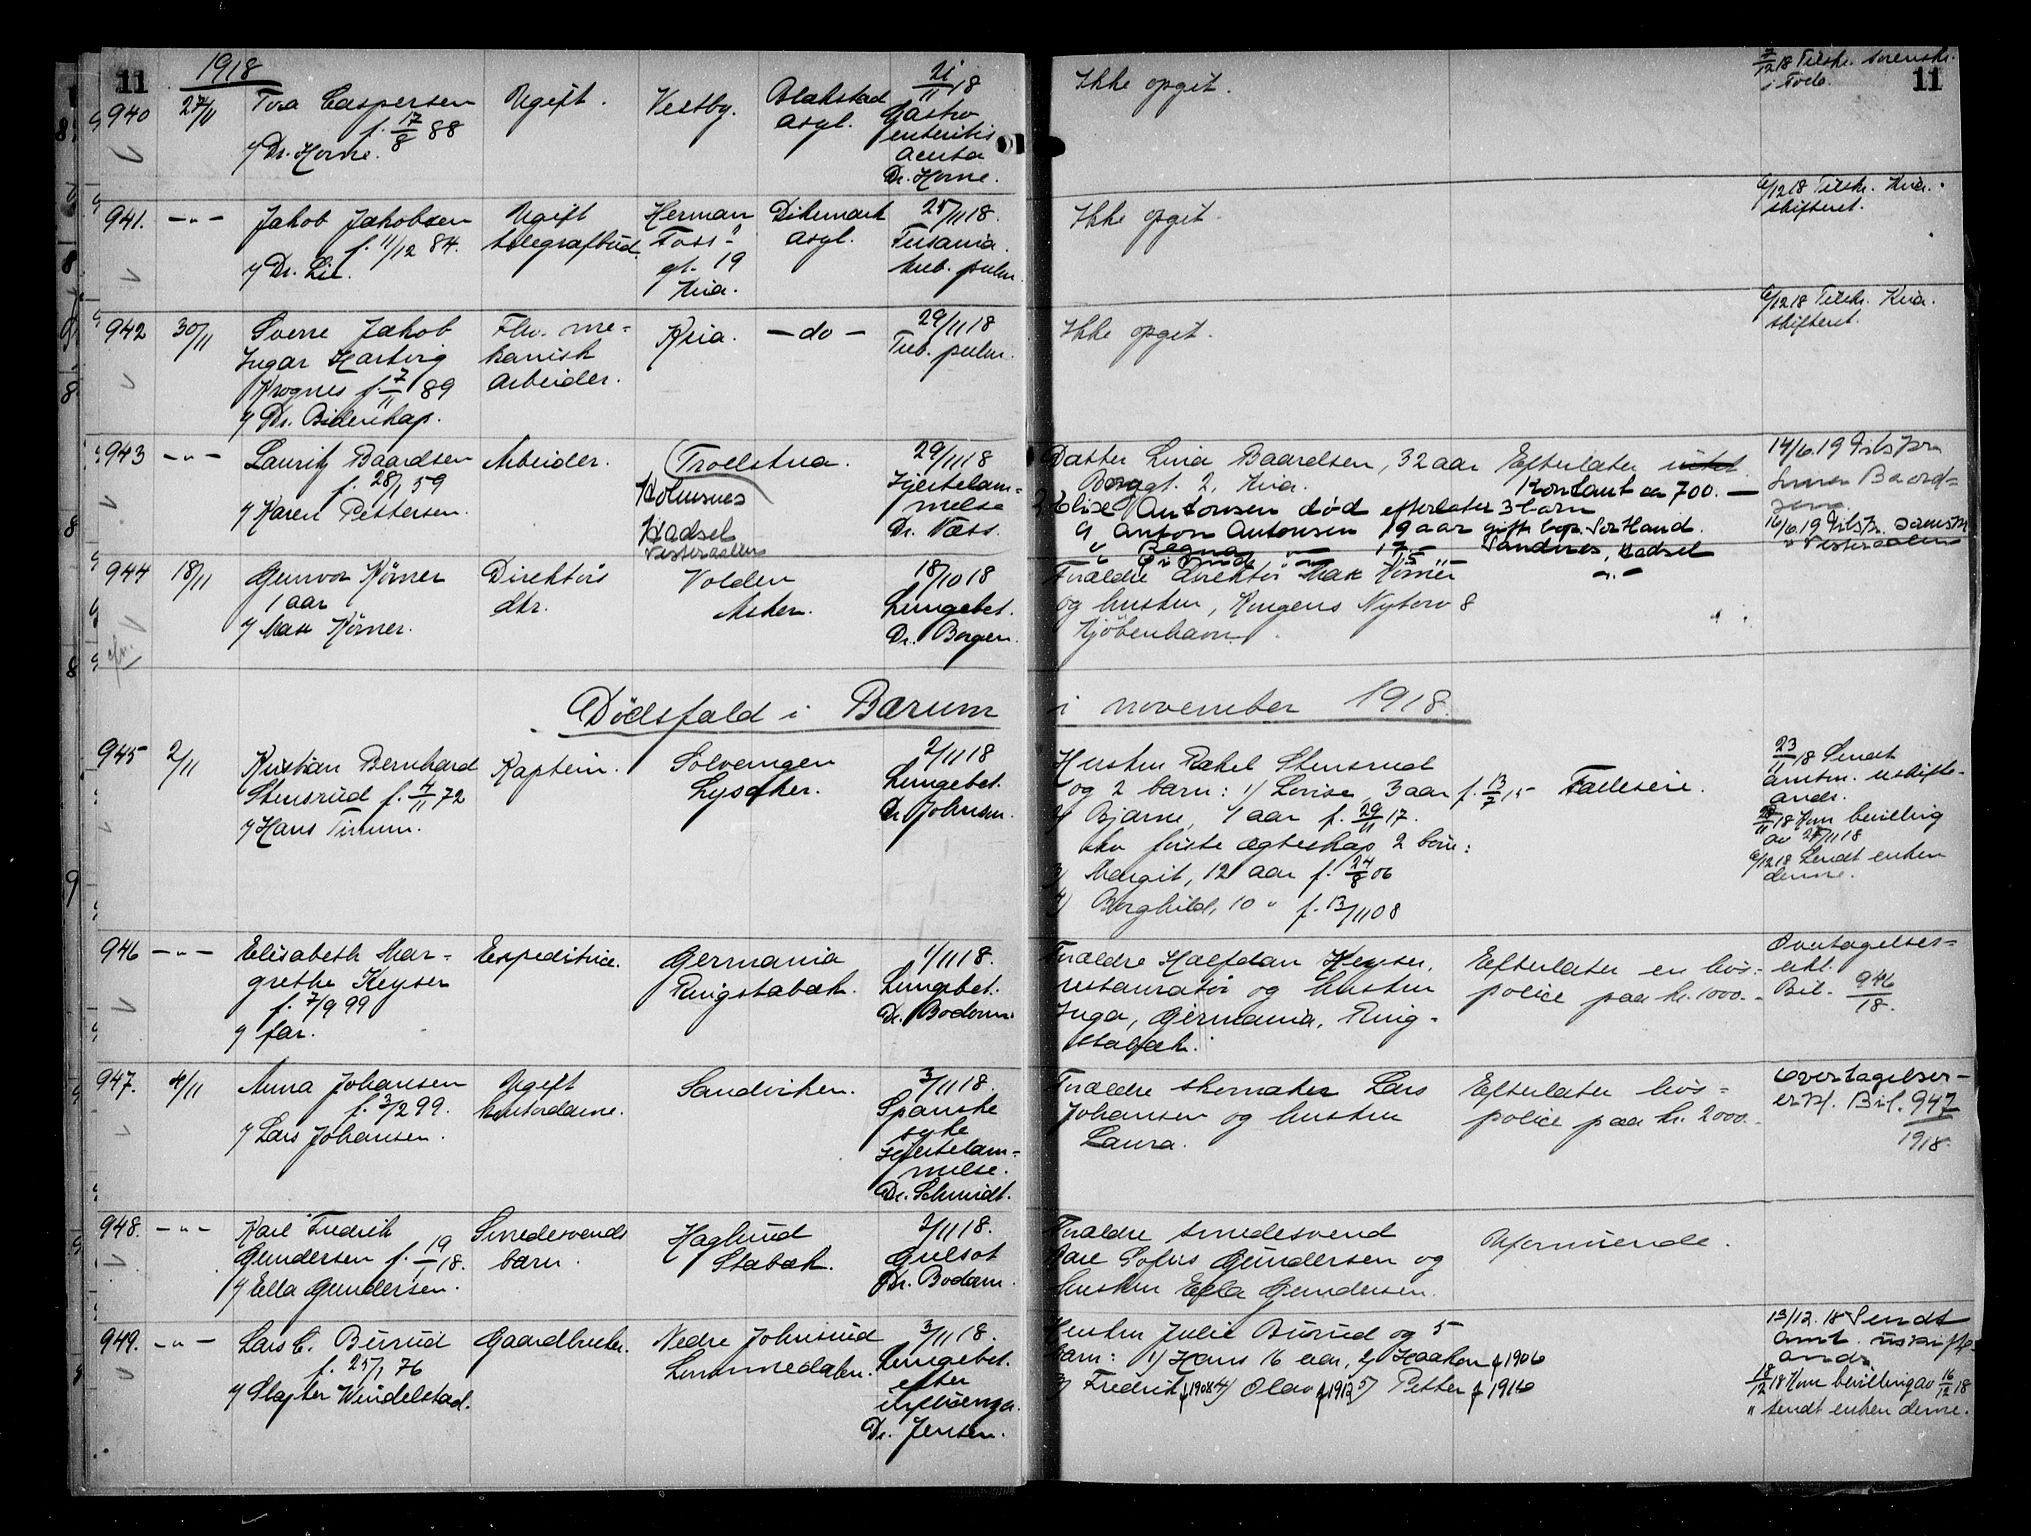 11
1918
11
940 27/11 Tora Caspersen Ugift. Vestby. Blakstad 21/11 18
f. 17/8 88 asyl. Gastro
v/ Dr. Horne. enteritis
acuta
Dr. Horne.
Ikke opgit.
2/12 18 Tilskr. sorenskr.
i Follo.
941. -"- Jakob Jakobsen Ugift Herman Dikemark 25/11 18.
f. 11/12 84. telegrafbud. Foss" asyl.
v/ Dr. Lie. gt. 19 tub. pulm.
Kria.
Ikke opgit
6/12 18 Tilskr. Kria.
skifteret.
942 30/11 Sverre Jakob Fhv. me= Kria. - do - 29/11 18
Ingar Hartvig kanisk Tub. pulm.
Krognes f. 7/11 89 arbeider.
v/ Dr. Bidenkap.
Ikke opgit.
6/12 18 Tilskr. Kria.
skifteret.
943 -"- Lauritz Baardsen Arbeider. Troelstua. 29/11 18
f. 28/1 59 Holmsnes Hjertelam=
v/ Karen Pettersen. Hadsel melse
Vesteraalen Dr. Næss.
Datter Lina Baardsen, 32 aar Efterlater intet
Borggt. 2, Kria. Kontant ca 700. —
2 Elise Antonsen død efterlater 3 barn
a Anton Antonsen 19 aar gift bor Sortland.
" Ragna " 17 - Sandnes, Hadsel
" " 15 " -"-
14/6.19 Tilskr
Lina Baard=
sen.
16/6.19 Tilskr. sorenskr
i Vesteraalen
944 18/11 Gunvor Körner Direktörs Volden 18/10 18
1 aar dtr. Asker. Lungebet.
v/ Max Körner. Dr. Borgen.
Forældre direktör Max Körner
og hustru, Kongens Nytorv 8
Kjöbenhavn.
Dödsfald i Bærum i november 1918.
945 2/11 Kristian Bernhard Kaptein. Solvangen 2/11 18
Stensrud f. 4/11 72 Lysaker. Lungebet.
v/ Hans Dr. Johnsen.
Hustru Rakel Stensrud
og 2 barn: 1/ Lovise, 3 aar f. 13/7 15 Fælleseie.
2/ Bjarne, 1 aar f. 29/11 17.
av förste ægteskap 2 barn:
3/ Margit, 12 aar f. 24/8 06
4/ Borghild, 10 " f. 13/11 08
23/11 18 Sendt
amtm. uskifte=
ands.
28/11 18 Kom bevilling
av 27/11 18
6/12 18 Sendt enken
denne.
946 -"- Elisabeth Mar- Expeditrice. Germania 1/11 18.
grethe Keyser Ringstabæk. Lungebet.
f. 7/9 99 Dr. Bodom.
v/ far.
Forældre Halfdan Keyser,
restauratör og hustru
Inga, Germania, Ring-
stabæk.
Efterlater en livs-
police paa kr. 1000.-
Overtagelses=
erkl.
Bil. 946/18.
947. 4/11 Anna Johansen Ugift Sandviken. 3/11 18.
f. 3/2 99. kontordame. Spanske
v/ Lars Johansen. syke
Hjertelam=
melse.
Dr. Schmidt.
Forældre skomaker Lars
Johansen og hustru
Laura.
Efterlater livs=
police paa kr. 2000.-
Overtagelses-
erkl. Bil. 947
1918.
948. -"- Karl Fredrik Smedesvends Haglund 2/11 18.
Gundersen f. 19/1 18. barn. Stabæk. Gulsot
v/ Ella Gundersen. Dr. Bodom.
Forældre smedesvend
Karl Sofus Gundersen og
hustru Ella Gundersen.
Uformuende.
949. -"- Lars C. Burud Gaardbruker. Nedre Johnsrud 3/11 18.
f. 25/1 76 Lommedalen. Lungebet.
v/ Slagter Windelstad. efter
influenza.
Dr. Jensen.
Hustru Julie Burud og 5
barn: 1/ Hans 16 aar, 2/ Haakon f 1906
3/ Fredrik f 1908 4/ Olav f 1912 5/ Petter f 1916
13/12. 18 Sendt
amt. uskifte
andr.
18/12 18 Kom bevilling av 16/12 18
" sendt enken denne.